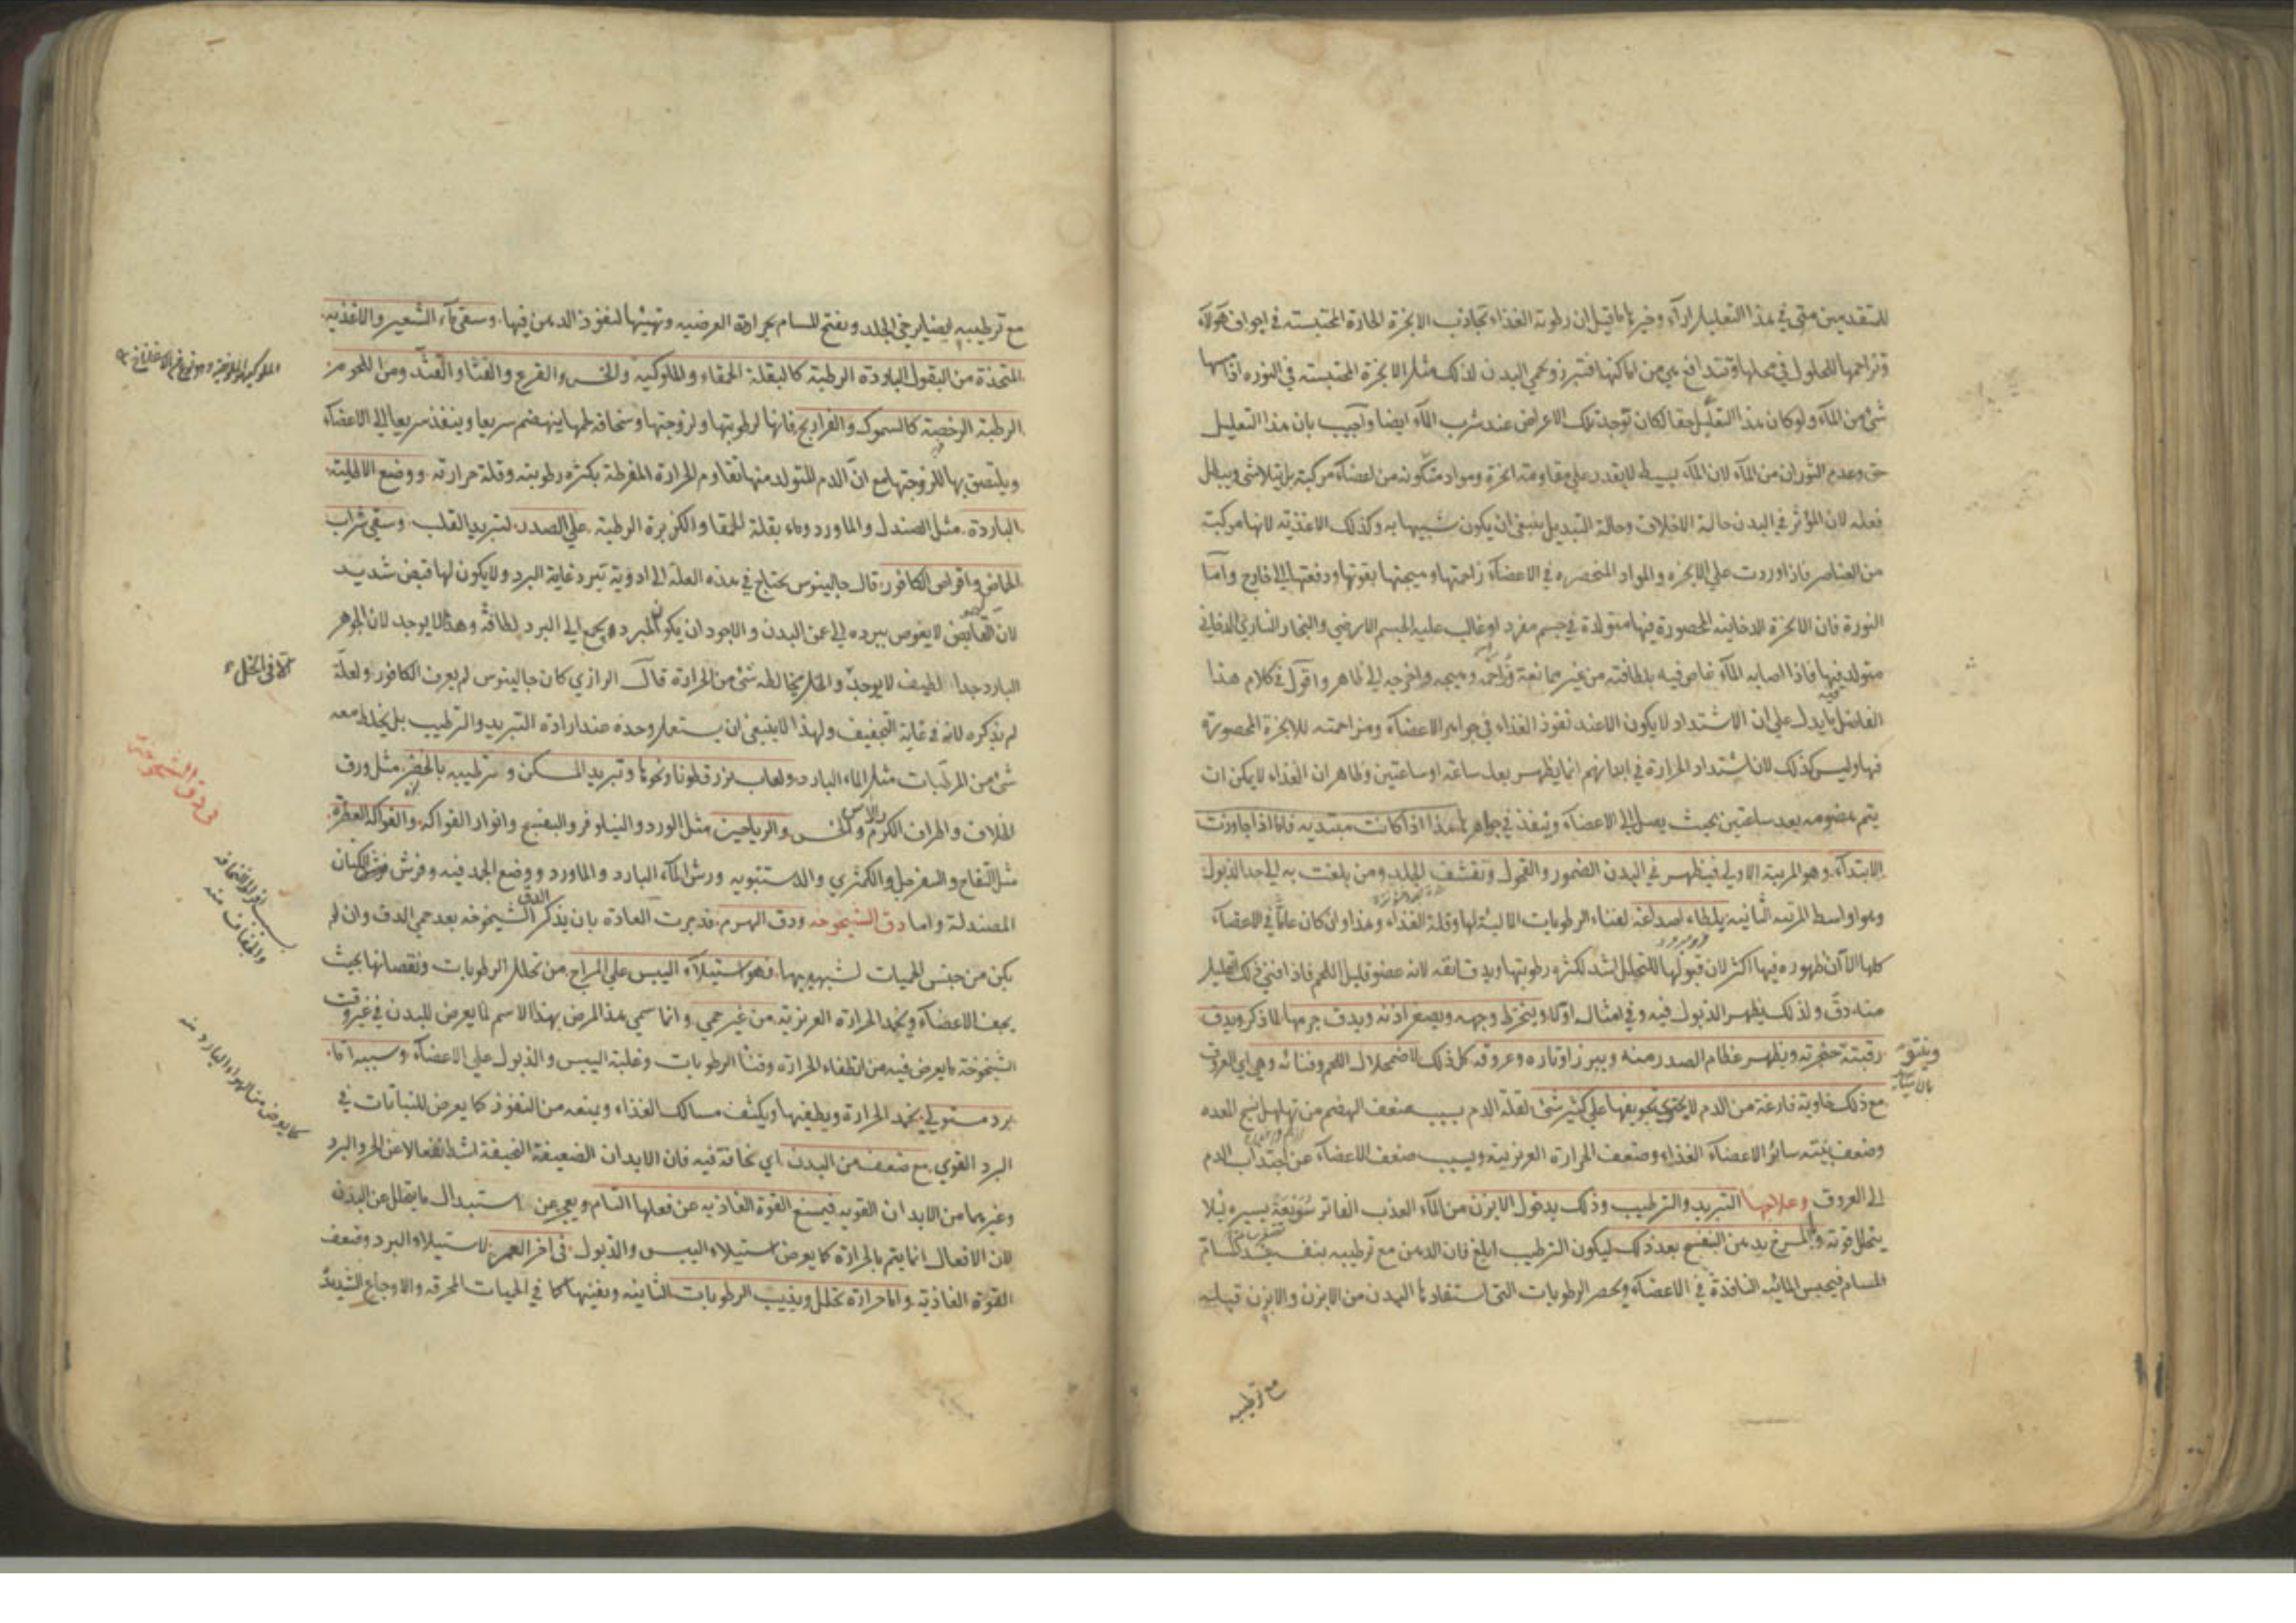 للمتقدمين متى في هذا التعليل اراء وغير ما قيل ان رطوبة الغذاء تجاذب الابخرة الحارة المحتبسة في اجواف هؤلاء
وتزاحمها للحلول في محلها وتتدافع هي من اماكنها فتبرز وتحمي البدن لذلك مثل الابخرة المحتبسة في النورة اذا مسها
شئ من الماء ولو كان هذا التعليل حقا لكان توجد تلك الاعراض عند شرب الماء ايضا واجيب بان هذا التعليل
حق وعدم الثوران من الماء لان الماء بسيط لا يقدر على مقاومة ابخرة ومواد متكونة من اعضاء مركبة بل يتلاشى ويبطل
فعله لان المؤثر في البدن حالة الاخلاف وحالة التبديل ينبغي ان يكون شبيها به وكذلك الاغذية لانها مركبة
من العناصر فاذا وردت على الابخره والمواد المنحصره في الاعضاء زاحمتها وهيجتها بقوتها ودفعتها الى خارج واما
النورة فان الابخرة الدخانية المحصورة فيها متولدة في جسم مفرد او غالب عليه الجسم الارضي والبخار الناري الدخاني
متولد فيها فاذا اصابه الماء غاص فيه بلطافته من غير ممانعة وزاحمه وهيجه واخرجه الى ظاهر واقول في كلام هذا
الفاضل ما يدل على ان الاشتداد لا يكون الا عند نفوذ الغذاء في جواهر الاعضاء ومزاحمته للابخرة المحصورة
فيها وليس كذلك لان اشتداد الحرارة في ابدانهم انما يظهر بعد ساعة او ساعتين وظاهر ان الغذاء لا يمكن ان
يتم هضومه بعد ساعتين بحيث يصل الى الاعضاء وينفذ في جواهرها هذا اذا كانت مبتديه فاما اذا جاوزت
الابتداء وهو المرتبة الاولى فيظهر في البدن الضمور والقحول وتقشف الجلد ومن بلغت به الى حد الذبول
وهو اواسط المرتبه الثانيه يلطاء اصداغه لفناء الرطوبات المالية لها وقلة الغذاء وهذا وان كان عاما في الاعضاء
كلها الا ان ظهوره فيها اكثر لان قبولها للتحلل اشد لكثره رطوبتها ويدق انفه لانه عضو قليل اللحم فاذا افنى ذلك القليل
منه دق ولذلك يظهر الذبول فيه وفي امثاله اولا وينخرط وجهه ويصغر اذنه ويدق جرمها لما ذكر ويدق
رقبته حنجرته ويظهر عظام الصدر منه ويبرز اوتاره وعروقه كل ذلك لاضمحلال اللحم وفنائه وهي اي العروق
مع ذلك خاوية فارغة من الدم لا يحتوي تجويفها على كثير شئ لقلة الدم بسبب ضعف الهضم من تهلهل نسج المعده
وضعف بنية سائر الاعضاء الغذاء وضعف الحرارة الغريزية وبسبب ضعف الاعضاء عن اجتذاب الدم
الى العروق وعلاجها التبريد والترطيب وذلك بدخول الابزن من الماء العذب الفاتر سويعة يسيره لئلا
يتحلل قوته والتمريخ بدهن البنفسج بعد ذلك ليكون الترطيب ابلغ فان الدهن مع ترطيبه بنفسه يسد المسام
المسام فيحبس المائية النافذة في الاعضاء ويحصر الرطوبات التي استفادها البدن من الابزن والابزن قبله
مع ترطيبه
مع ترطيبه ايضا يرخي الجلد ويفتح المسام بحرارته العرضيه وتهيئها لنفوذ الدهن فيها وسقي ماء الشعير والاغذيه
المتخذة من البقول الباردة الرطبة كالبقلة الحمقاء والملوكية والخس والقرع والقثاء والقثد ومن اللحوم
الرطبة الرخصة كالسموك والفراريج فانها لرطوبتها ولزوجتها وسخافة لحمها ينهضم سريعا وينفذ سريعا الى الاعضاء
ويلتصق بها للزوجتها مع ان الدم المتولد منها تقاوم الحرارة المفرطة بكثره رطوبته وقلة حرارته ووضع الاطلية
الباردة مثل الصندل والماورد وماء بقلة الحمقا والكزبرة الرطبة على الصدر لتبريد القلب وسقي شراب
الحماض واقراص الكافور قال جالينوس يحتاج في هذه العلة الى ادوية تبرد غاية البرد ولا يكون لها قبض شديد
لان القابض لا يغوص ببرده الى عمق البدن والاجود ان يكون المبرد يجمع الى البرد لطافة وهذا لا يوجد لان الجوهر
البارد جدا لطيف لا يوجد والخل يخالطه شئ من الحرارة قال الرازي كان جالينوس لم يعرف الكافور ولعله
لم يذكره لانه في غاية التجفيف ولهذا لا ينبغي ان يستعمل وحده عند ارادة التبريد والترطيب بل يخلط معه
شئ من المرطبات مثل الماء البارد ولعاب بزرقطونا ونحوها وتبريد المسكن وترطيبه بالخضر مثل ورق
الخلاف واطراف الكرم والاس والخس والرياحين مثل الورد والنيلوفر والبنفسج وانوار الفواكه والفواكه العطره
مثل التفاح والسفرجل والكمثرى والدستنبويه ورش الماء البارد والماورد ووضع الجمد فيه وفرش الكتان
المصندلة واما دق الشيخوخه ودق الهرم فقد جرت العادة بان يذكر الدق الشيخوخه بعد حمى الدق وان لم
يكن من جنس الحميات لشبهه بها فهو استيلاء اليبس على المزاج من تحلل الرطوبات ونقصانها بحيث
يجف الاعضاء ويخمد الحرارة الغريزية من غير حمى وانما سمي هذا المرض بهذا الاسم لما يعرض للبدن في غير وقت
الشيخوخة ما يعرض فيه من انطفاء الحرارة وفناء الرطوبات وغلبة اليبس والذبول على الاعضاء وسببه اما
برد مستولي يخمد الحرارة ويطفيها ويكثف مسالك الغذاء ويمنعه من النفوذ كما يعرض للنباتات في
البرد القوي مع ضعف من البدن اي نحافة فيه فان الابدان الضعيفة النحيفة اشد انفعالا عن الحر والبرد
وغيرهما من الابدان القويه فيمنع القوة الغاذيه عن فعلها التام ويعجز عن استبدال ما يتحلل عن البدن
لان الافعال انما يتم بالحرارة كما يعرض استيلاء اليبس والذبول في اخر العمر لاستيلاء البرد وضعف
القوة الغاذية واما حرارة تحلل ويذيب الرطوبات الثانية ويفنيها كما في الحميات المحرقه والاوجاع الشديدة
في دق الشيخوخة